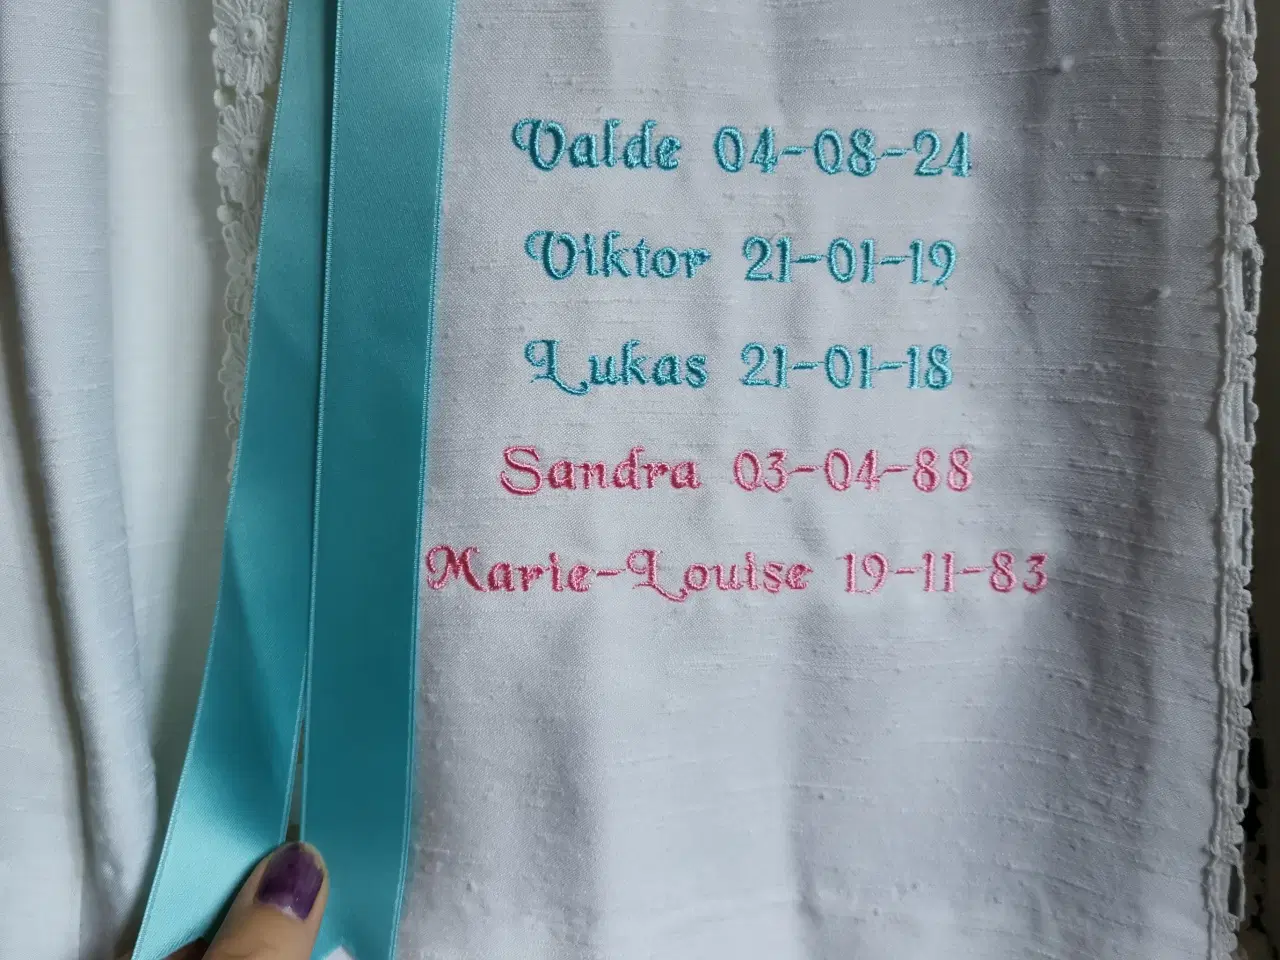 Valde 04-08-24
Viktor 21-01-19
Lukas 21-01-18
Sandra 03-04-88
Marie-Louise 19-11-83